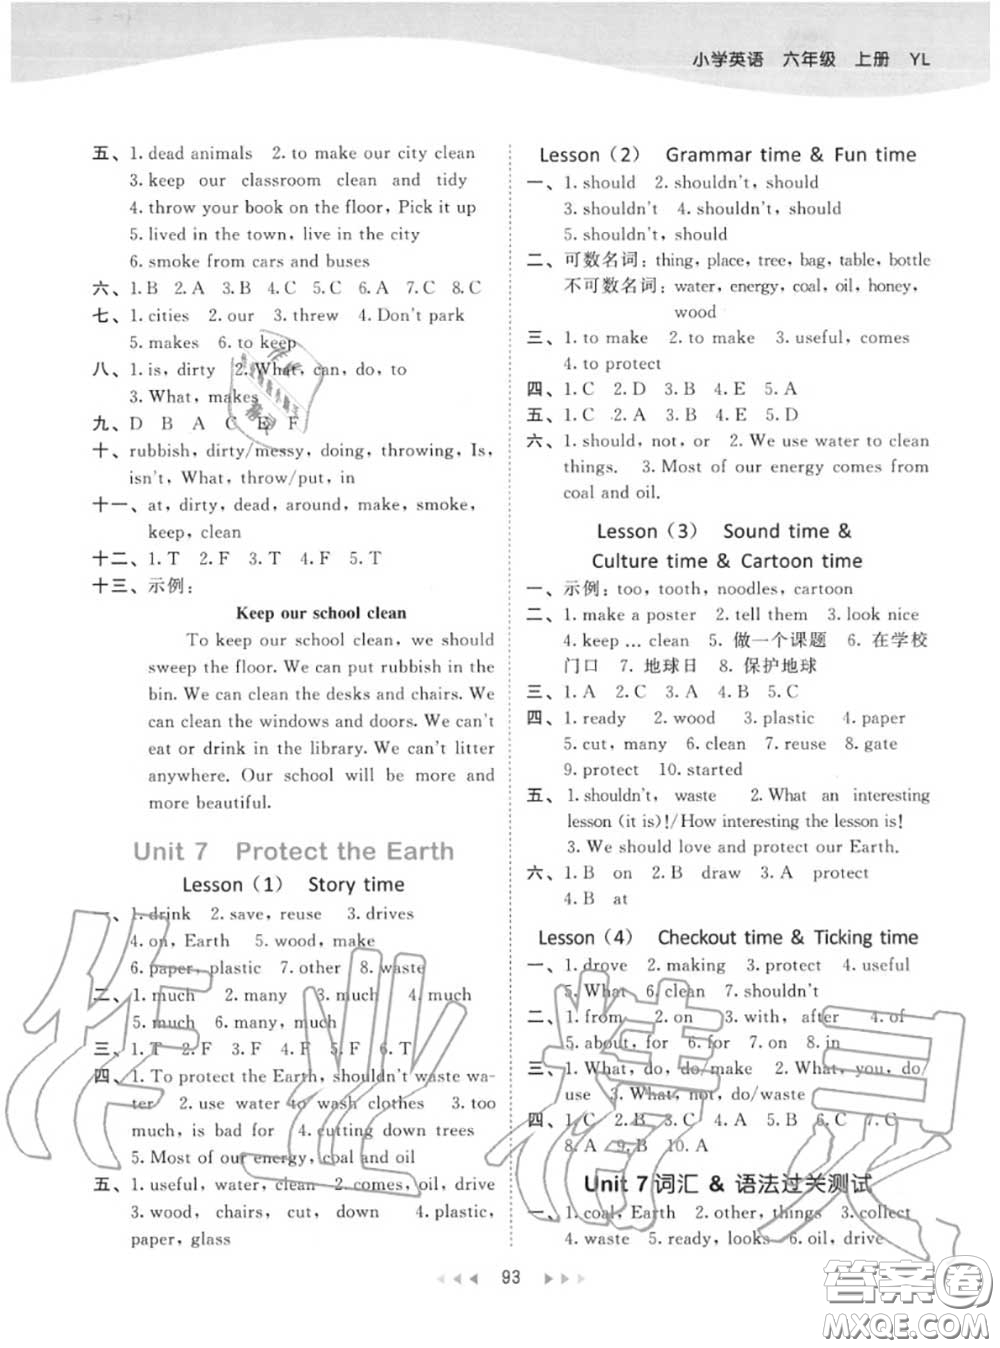 小学英语 六年级 上册 YL
五、1. dead animals 2. to make our city clean
3. keep our classroom clean and tidy
4. throw your book on the floor, Pick it up
5. lived in the town, live in the city
6. smoke from cars and buses
六、1. B 2. A 3. B 4. C 5. C 6. A 7. C 8. C
七、1. cities 2. our 3. threw 4. Don't park
5. makes 6. to keep
八、1. is, dirty 2. What, can, do, to
3. What, makes
九、D B A C E F
十、rubbish, dirty/messy, doing, throwing, Is,
isn't, What, throw/put, in
十一、at, dirty, dead, around, make, smoke,
keep, clean
十二、1. T 2. F 3. T 4. F 5. T
十三、示例：
Keep our school clean
To keep our school clean, we should
sweep the floor. We can put rubbish in the
bin. We can clean the desks and chairs. We
can clean the windows and doors. We can't
eat or drink in the library. We can't litter
anywhere. Our school will be more and
more beautiful.
Unit 7 Protect the Earth
Lesson (1) Story time
一、1. drink 2. save, reuse 3. drives
4. on, Earth 5. wood, make
6. paper, plastic 7. other 8. waste
二、1. much 2. many 3. much 4. much
5. much 6. many, much
三、1. T 2. F 3. F 4. F 5. F 6. T
四、1. To protect the Earth, shouldn't waste wa-
ter 2. use water to wash clothes 3. too
much, is bad for 4. cutting down trees
5. Most of our energy, coal and oil
五、1. useful, water, clean 2. comes, oil, drive
3. wood, chairs, cut, down 4. plastic,
paper, glass
Lesson (2) Grammar time & Fun time
一、1. should 2. shouldn't, should
3. shouldn't 4. shouldn't, should
5. shouldn't, should
二、可数名词：thing, place, tree, bag, table, bottle
不可数名词：water, energy, coal, oil, honey,
wood
三、1. to make 2. to make 3. useful, comes
4. to protect
四、1. C 2. D 3. B 4. E 5. A
五、1. C 2. A 3. B 4. E 5. D
六、1. should, not, or 2. We use water to clean
things. 3. Most of our energy comes from
coal and oil.
Lesson (3) Sound time &
Culture time & Cartoon time
一、示例：too, tooth, noodles, cartoon
二、1. make a poster 2. tell them 3. look nice
4. keep … clean 5. 做一个课题 6. 在学校
门口 7. 地球日 8. 保护地球
三、1. A 2. C 3. A 4. B 5. C
四、1. ready 2. wood 3. plastic 4. paper
5. cut, many 6. clean 7. reuse 8. gate
9. protect 10. started
五、1. shouldn't, waste 2. What an interesting
lesson (it is)!/How interesting the lesson is!
3. We should love and protect our Earth.
六、1. B on 2. B draw 3. A protect
4. B at
Lesson (4) Checkout time & Ticking time
一、1. drove 2. making 3. protect 4. useful
5. What 6. clean 7. shouldn't
二、1. from 2. on 3. with, after 4. of
5. about, for 6. for 7. on 8. in
三、1. What, do, do/make 2. What, you, do/
use 3. What, not, do/waste
四、1. C 2. B 3. C 4. A 5. B 6. C 7. C
8. A 9. B 10. A
Unit 7 词汇 & 语法过关测试
一、1. coal, Earth 2. other, things 3. collect
4. waste 5. ready, looks 6. oil, drive
93
作业精灵
答案卷
MXQE.COM